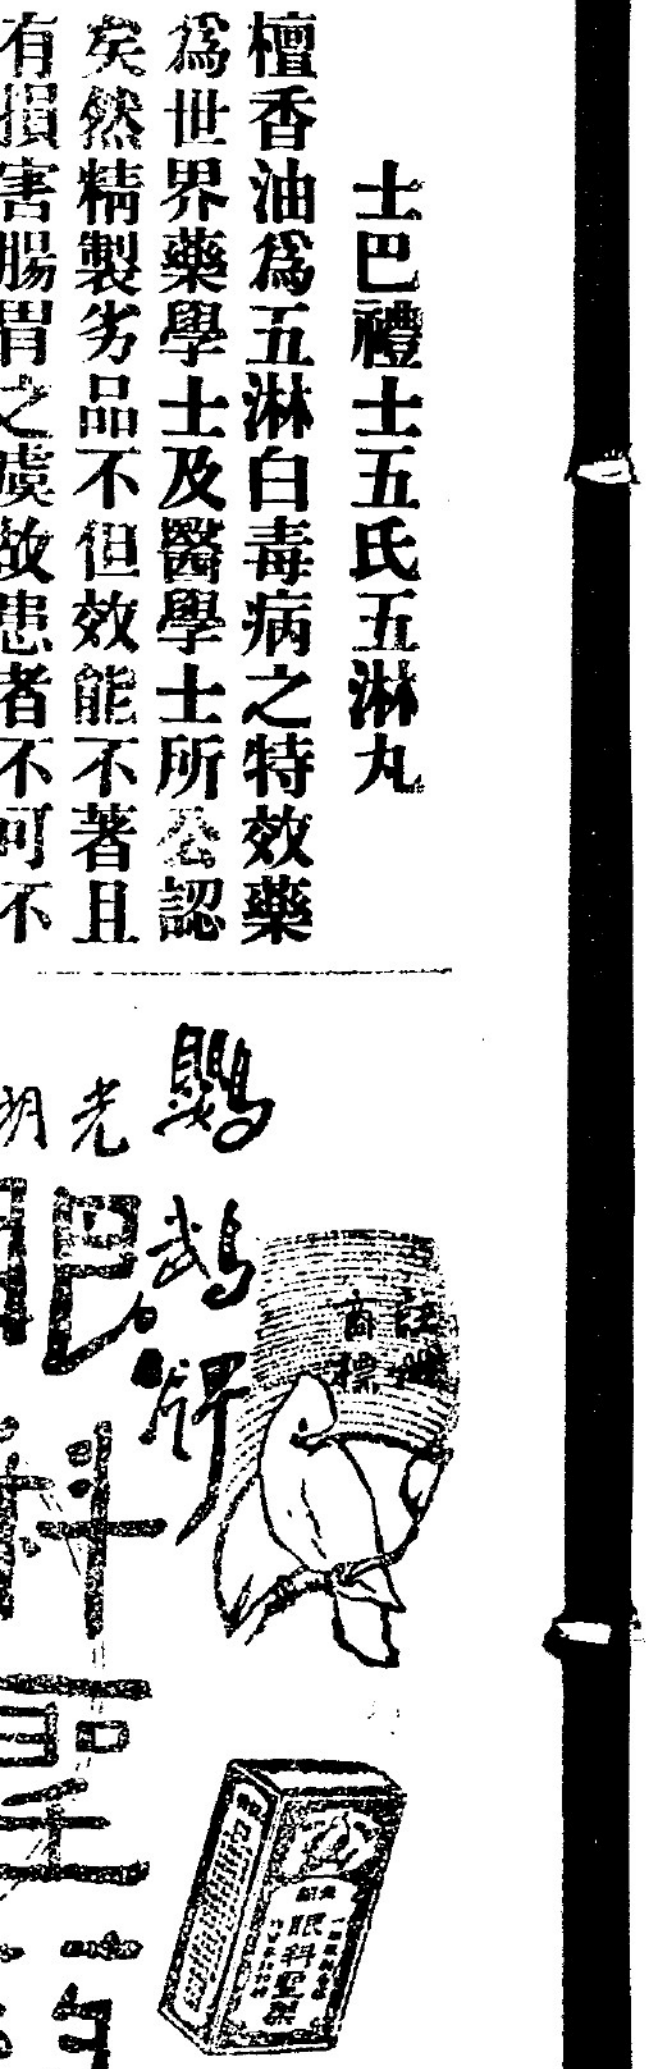 士巴禮士五氏五淋丸
檀香油爲五淋白毒病之特效藥
爲世界藥學士及醫學士所公認
矣然精製劣品不但效能不著且
有損害腸胃之虞故患者不可不
註冊
商標
鸚鵡牌
光明
眼科聖
眼科聖藥